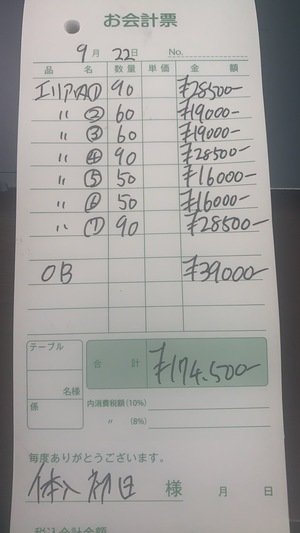 お会計票
9月 22日 No.
品名 数量 単価 金額
エリア内① 90 ¥28500-
〃 ② 60 ¥19000-
〃 ③ 60 ¥19000-
〃 ④ 90 ¥28500-
〃 ⑤ 50 ¥16000-
〃 ⑥ 50 ¥16000-
〃 ⑦ 90 ¥28500-
OB ¥39000-
テーブル
名様
係
合計 ¥174.500-
内消費税額(10%)
〃 (8%)
毎度ありがとうございます。
体入初日 様 月 日
税込合計金額